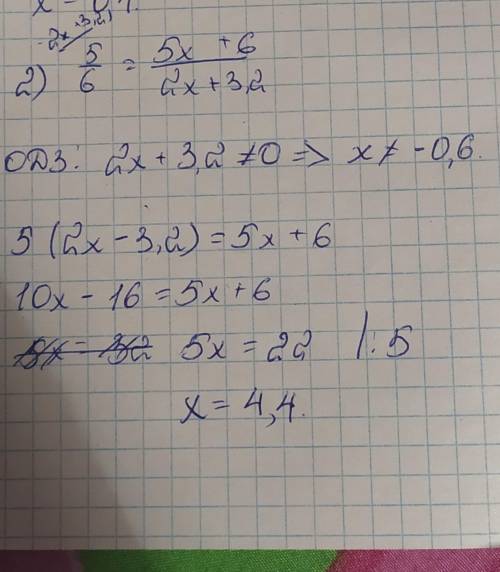 2x 3,2)
2) 5/6 = (5x + 6)/(2x + 3,2)
ОДЗ: 2x + 3,2 ≠ 0 => x ≠ -0,6.
5 (2x - 3,2) = 5x + 6
10x - 16 = 5x + 6
5x = 22 |: 5
x = 4,4.